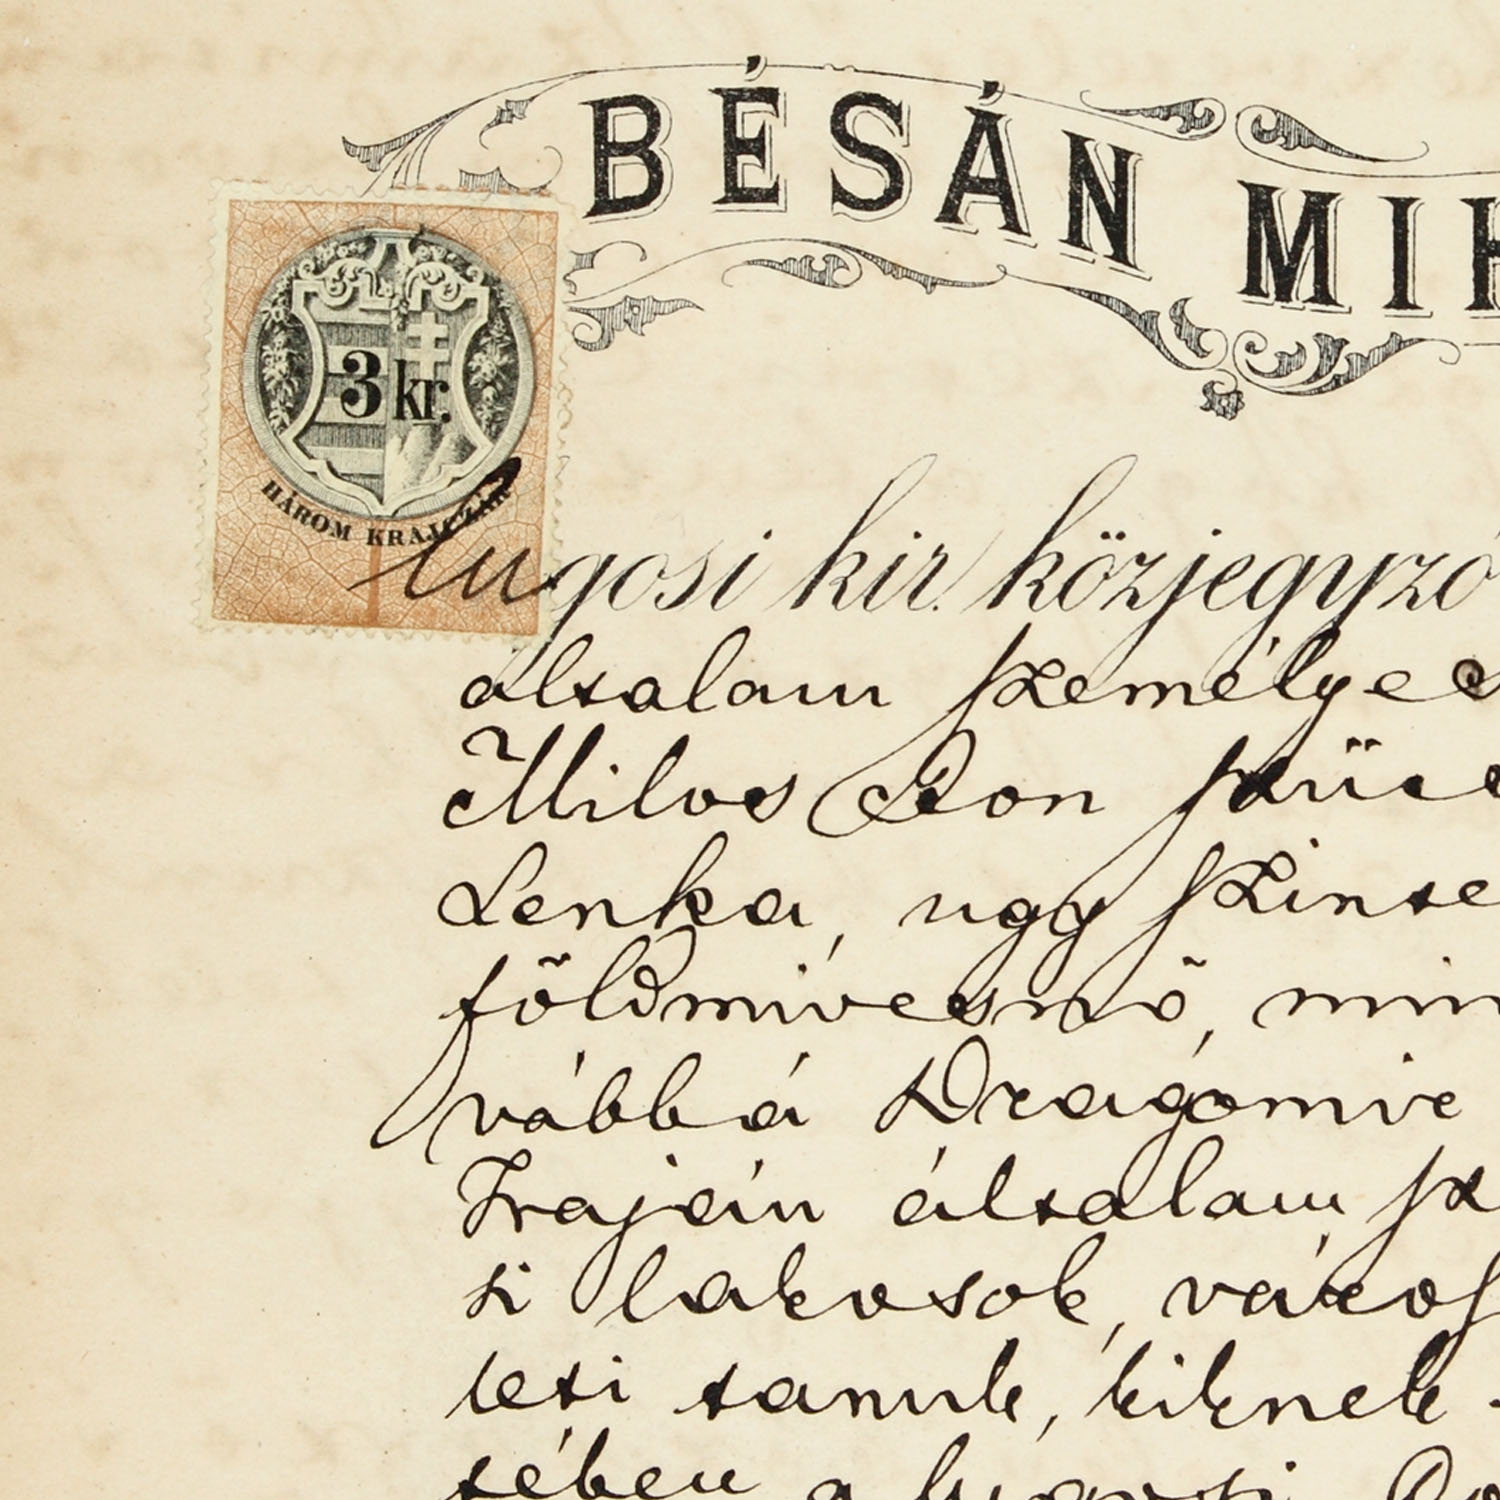 BÉSÁN MIH
3 kr.
HÁROM KRAJCZÁR
lugosi kir. közjegyző
általam személyes
Milos Ion szüle
Lenka, ugy szinte
földmivesnő, min
vábbá Dragomir
Traján általam sz
si lakosok, város
leti tanuk, kiknek
tében a lugosi